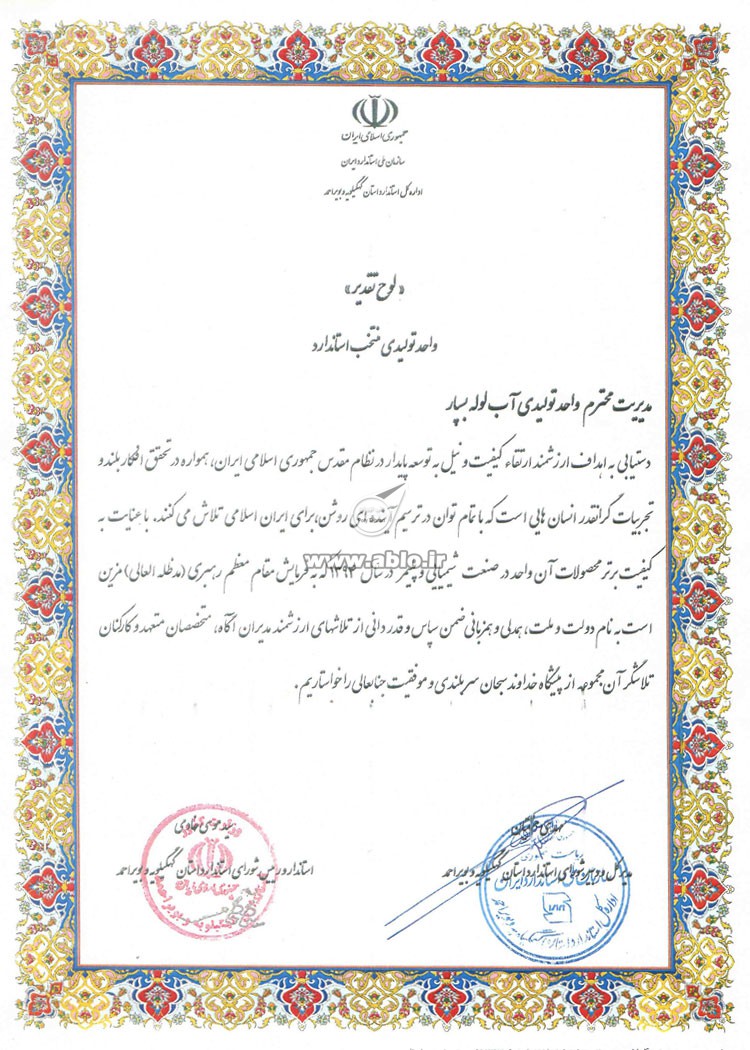 جمهوری اسلامی ایران
سازمان ملی استاندارد ایران
اداره کل استاندارد استان کهگیلویه و بویراحمد
«لوح تقدیر»
واحد تولیدی منتخب استاندارد
مدیریت محترم واحد تولیدی آب لوله بسپار
دستیابی به اهداف ارزشمند ارتقاء کیفیت و نیل به توسعه پایدار در نظام مقدس جمهوری اسلامی ایران، همواره در تحقق افکار بلند و
تجربیات گرانقدر انسان هایی است که با تمام توان در ترسیم آینده ای روشن، برای ایران اسلامی تلاش می کنند. با عنایت به
www.ablo.ir
کیفیت برتر محصولات آن واحد در صنعت شیمیایی و پلیمر در سال ۱۳۹۴ که به فرمایش مقام معظم رهبری (مدظله العالی) مزین
است به نام دولت و ملت، همدلی و همزبانی ضمن سپاس و قدردانی از تلاشهای ارزشمند مدیران آگاه، متخصصان متعهد و کارکنان
تلاشگر آن مجموعه از پیشگاه خداوند سبحان سربلندی و موفقیت جنابعالی را خواستاریم.
سید موسی خادمی
استاندار و رییس شورای استاندارد استان کهگیلویه و بویراحمد
مدیرکل و دبیر شورای استاندارد استان کهگیلویه و بویراحمد